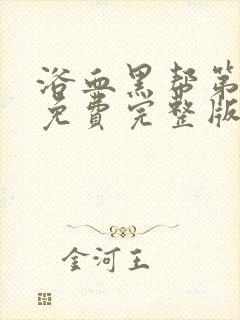 浴血黑帮第
免费完整版
金河王